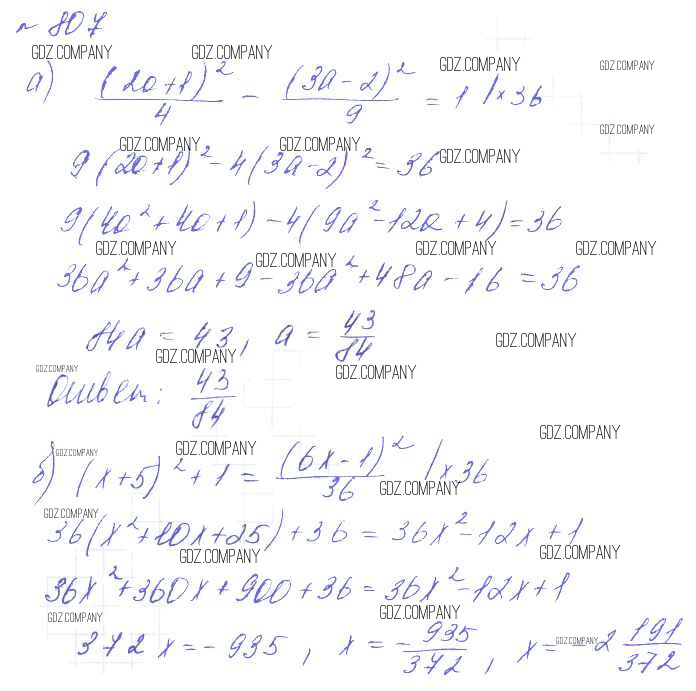 № 807
GDZ.COMPANY GDZ.COMPANY GDZ.COMPANY GDZ.COMPANY
а) (2a+1)²/4 - (3a-2)²/9 = 1 |×36
GDZ.COMPANY
GDZ.COMPANY GDZ.COMPANY GDZ.COMPANY
9(2a+1)² - 4(3a-2)² = 36
9(4a²+4a+1) - 4(9a²-12a+4) = 36
GDZ.COMPANY GDZ.COMPANY GDZ.COMPANY GDZ.COMPANY
36a²+36a+9-36a²+48a-16 = 36
84a = 43, a = 43/84
GDZ.COMPANY GDZ.COMPANY
GDZ.COMPANY GDZ.COMPANY
Ответ: 43/84
GDZ.COMPANY
GDZ.COMPANY GDZ.COMPANY
б) (x+5)² + 1 = (6x-1)²/36 |×36
GDZ.COMPANY
GDZ.COMPANY
36(x²+10x+25)+36 = 36x²-12x+1
GDZ.COMPANY GDZ.COMPANY
36x²+360x+900+36 = 36x²-12x+1
GDZ.COMPANY GDZ.COMPANY
372x = -935, x = -935/372, x = -2 191/372
GDZ.COMPANY